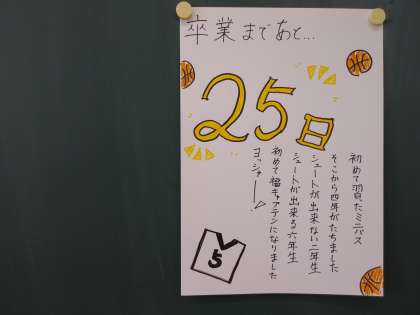 卒業まであと...
25日
初めて習たミニバス
そこから四年がたちました
シュートが出来ない二年生
シュートが出来る六年生
初めて福キャプテンになりました
ヨッシャー!
5